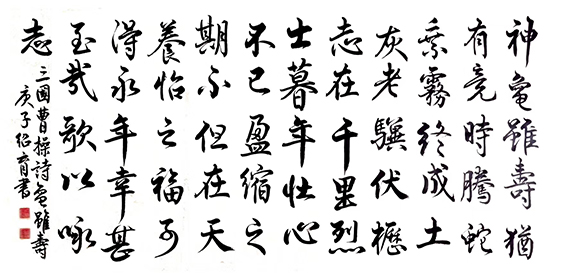 神龜雖壽猶
有竟時騰蛇
乘霧終成土
灰老驥伏櫪
志在千里烈
士暮年壯心
不已盈縮之
期不但在天
養怡之福可
得永年幸甚
至哉歌以咏
志
三國曹操詩龜雖壽
庚子紹書